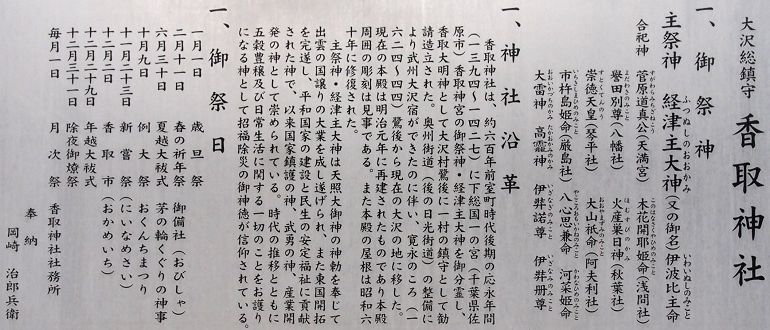 大沢総鎮守 香取神社
一、御祭神
主祭神 経津主大神(又の御名)伊波比主命
ふつぬしのおおかみ いわいぬしのみこと
合祀神 菅原道真公(天満宮) 木花開耶姫命(浅間社)
誉田別尊(八幡社) 火産巣日神(秋葉社)
崇徳天皇(琴平社) 大山祇命(阿夫利社)
市杵島姫命(厳島社) 八心思兼命 河菜姫命
大雷神 高龗神 伊弉諾尊 伊弉册尊
一、神社沿革
香取神社は、約六百年前室町時代後期の応永年間
(一三九四~一四二七)に下総国一の宮(千葉県佐
原市)香取神宮の御祭神・経津主大神を御分霊し、
香取大明神として大沢村鷺後に一村の鎮守として勧
請造立された。奥州街道(後の日光街道)の整備に
より武州大沢宿ができたのに伴い、寛永のころ(一
六二四~四四)鷺後から現在の大沢の地に移した。
現在の本殿は明治元年に再建されたものであり本殿
周囲の彫刻は見事である。また本殿の屋根は昭和六
十年に修復された。
主祭神・経津主大神は天照大御神の神勅を奉じて
出雲の国譲りの大業を成し遂げられ、また東国開拓
を完遂し、平和国家の建設と民生の安定福祉に貢献
された神で、以来国家鎮護の神、武勇の神、産業開
発の神として崇められている。時代の推移とともに
五穀豊穣及び日常生活に関する一切のことをお護り
になる神として招福除災の御神徳が信仰されている。
一、御祭日
一月一日 歳旦祭
二月十一日 春の祈年祭 御備社(おびしゃ)
六月三十日 夏越大祓式 茅の輪くぐりの神事
十月九日 例大祭 おくんちまつり
十一月二十三日 新嘗祭(にいなめさい)
十二月二十九日 香取市(おかめいち)
年越大祓式
十二月三十一日 除夜御燎祭
毎月一日 月次祭 香取神社社務所
奉納
岡﨑 治郎兵衛